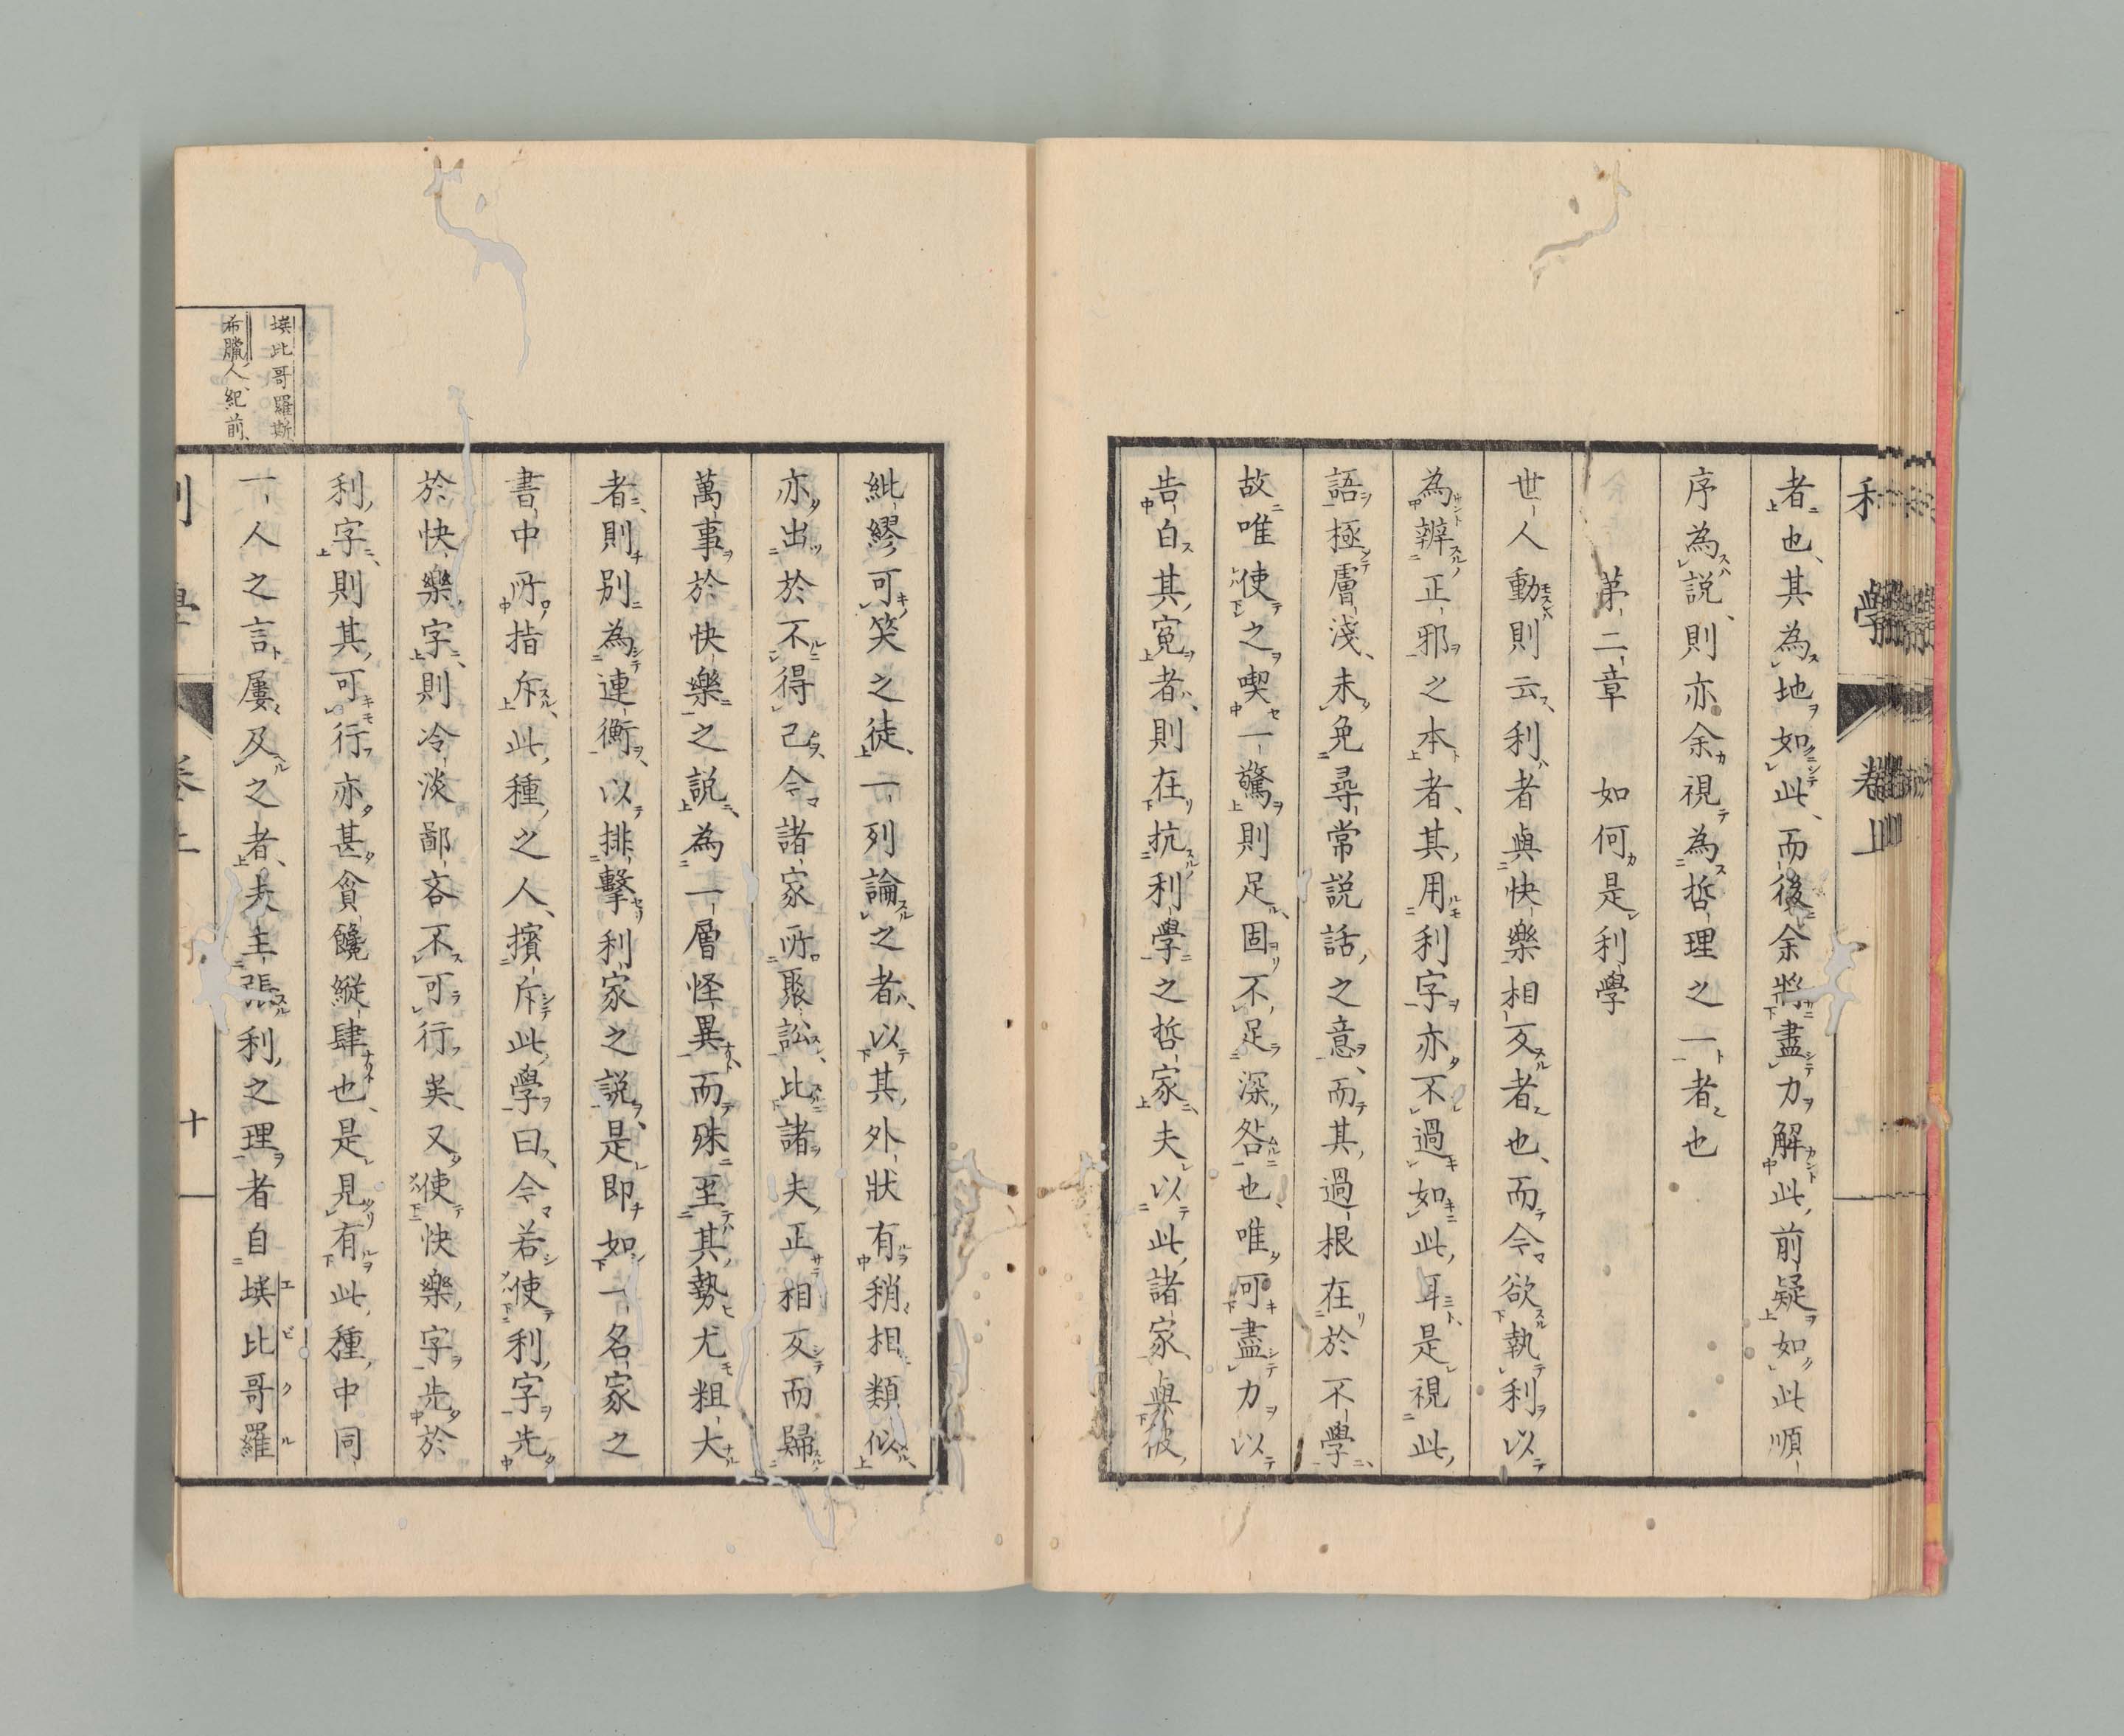 利學 卷上
者也、其為地如此、而後余將盡力解此前疑如此順
序為説、則亦余視為哲理之一者也
第二章 如何是利學
世人動則云、利者與快樂相反者也、而今欲執利以
為辨正邪之本者、其用利字亦不過如此耳、是視此
語極膚淺、未免尋常説話之意、而其過根在於不學、
故唯使之喫一驚則足、固不足深咎也、唯可盡力以
告白其寃者、則在抗利學之哲家、夫以此諸家、與彼
紕繆可笑之徒、一列論之者、以其外狀有稍相類似、
亦出於不得已、今諸家所聚訟、比諸夫正相反而歸
萬事於快樂之説、為一層怪異而殊至其勢尤粗大
者、則別為連衡、以排擊利家之説、是即如一名家之
書中所指斥、此種之人、擯斥此學曰、今若使利字先
於快樂字、則冷淡鄙吝不可行矣、又使快樂字先於
利字、則其可行亦甚貪饞縱肆也、是見有此種中同
一人之言屢及之者、夫主張利之理者自埃比哥羅
埃比哥羅斯
希臘人、紀前、
利學 卷上 十